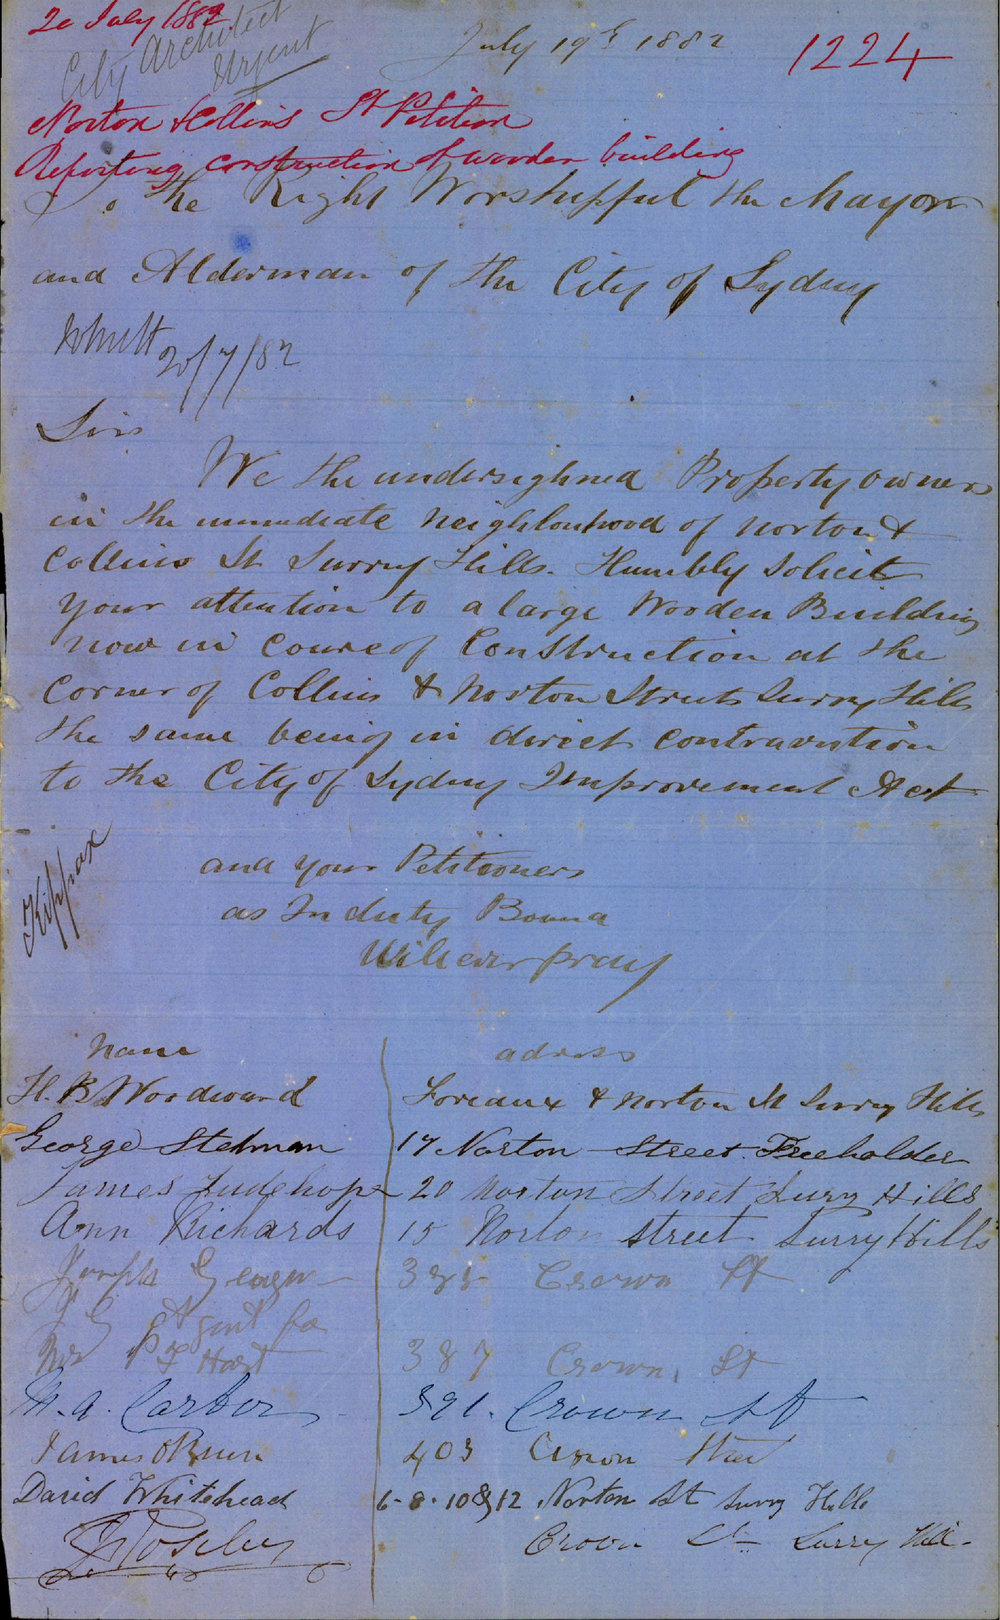 20 July 1882
City Architect
Urgent
July 19th 1882
1224
Norton & Collins St Petition
Reporting construction of wooden building
To the Right Worshupful the Mayor
and Alderman of the City of Sydney
20/7/82
Sirs
We the undersighned Property owners
in the immediate neighbourhood of Norton &
Collins St Surry Hills. Humbly Solicit
your attention to a large Wooden Building
now in course of Construction at the
Corner of Collins & Norton Streets Surry Hills
the same being in direct contravention
to the City of Sydney Improvement Act
Kippax
and your Petitioners
as In duty Bound
Will ever pray
Name adress
H. B. Woodward Foveaux & Norton St Surry Hills
George Stelman 17 Norton Street Freeholder
James Judehope 20 Norton Street Surry Hills
Ann Richards 15 Norton street Surry Hills
Joseph 385 Crown St
J G Agent for
Mrs P F Hart 387 Crown, St
M. A. Carter 391. Crown St
James OBrien 403 Crown Street
David Whitehead 6-8-10 & 12 Norton St Surry Hills
Crown St Surry Hill.